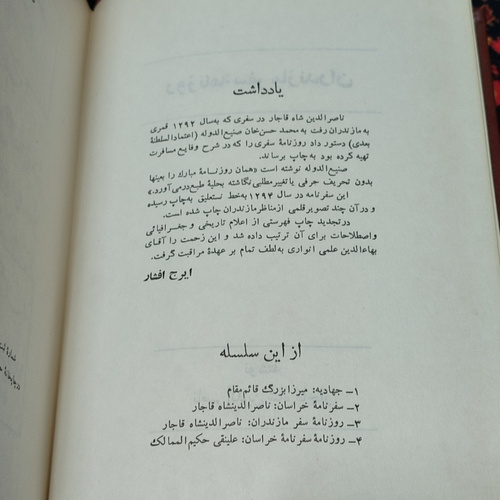 یادداشت
ناصرالدین شاه قاجار در سفری که به‌سال ۱۲۹۲ قمری
به مازندران رفت به محمد حسن‌خان صنیع‌الدوله (اعتمادالسلطنهٔ
بعدی) دستور داد روزنامهٔ سفری را که در شرح وقایع مسافرت
تهیه کرده بود به‌چاپ برساند.
صنیع‌الدوله نوشته است «همان روزنامهٔ مبارک را بعینها
بدون تحریف حرفی یا تغییر مطلبی نگاشته بحلیهٔ طبع درمی‌آورد.»
این سفرنامه در سال ۱۲۹۴ به‌خط نستعلیق به‌چاپ رسیده
و در آن چند تصویر قلمی از مناظر مازندران چاپ شده است.
در تجدید چاپ فهرستی از اعلام تاریخی و جغرافیائی
و اصطلاحات برای آن ترتیب داده شد و این زحمت را آقای
بهاءالدین علمی انواری به‌لطف تمام بر عهدهٔ مراقبت گرفت.
ایرج افشار
از این سلسله
۱ـ جهادیه: میرزا بزرگ قائم‌مقام
۲ـ سفرنامهٔ خراسان: ناصرالدینشاه قاجار
۳ـ روزنامهٔ سفر مازندران: ناصرالدینشاه قاجار
۴ـ روزنامهٔ سفرنامهٔ خراسان: علینقی حکیم‌الممالک